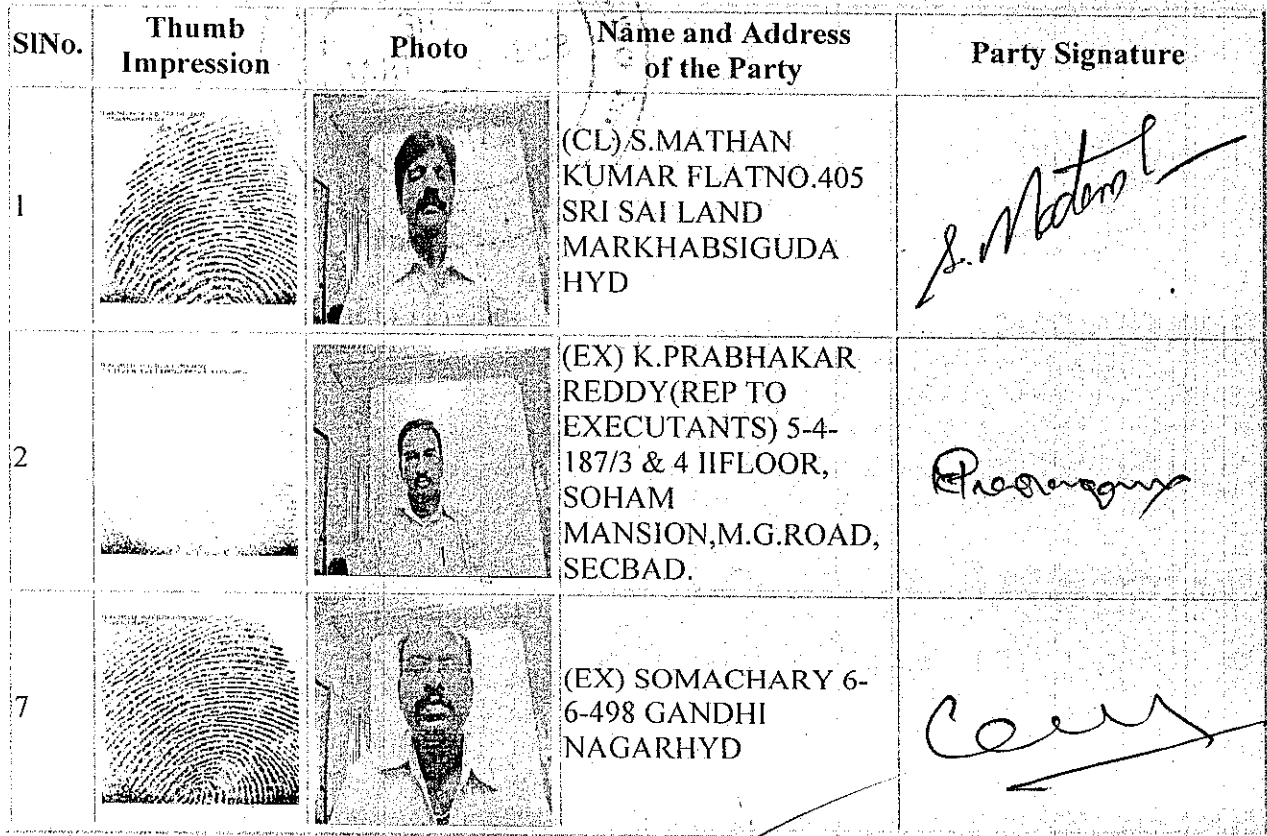 SlNo.
Thumb
Impression
Photo
Name and Address
of the Party
Party Signature
1
(CL) S.MATHAN
KUMAR FLATNO.405
SRI SAI LAND
MARKHABSIGUDA
HYD
S.
2
(EX) K.PRABHAKAR
REDDY(REP TO
EXECUTANTS) 5-4-
187/3 & 4 IIFLOOR,
SOHAM
MANSION,M.G.ROAD,
SECBAD.
7
(EX) SOMACHARY 6-
6-498 GANDHI
NAGARHYD